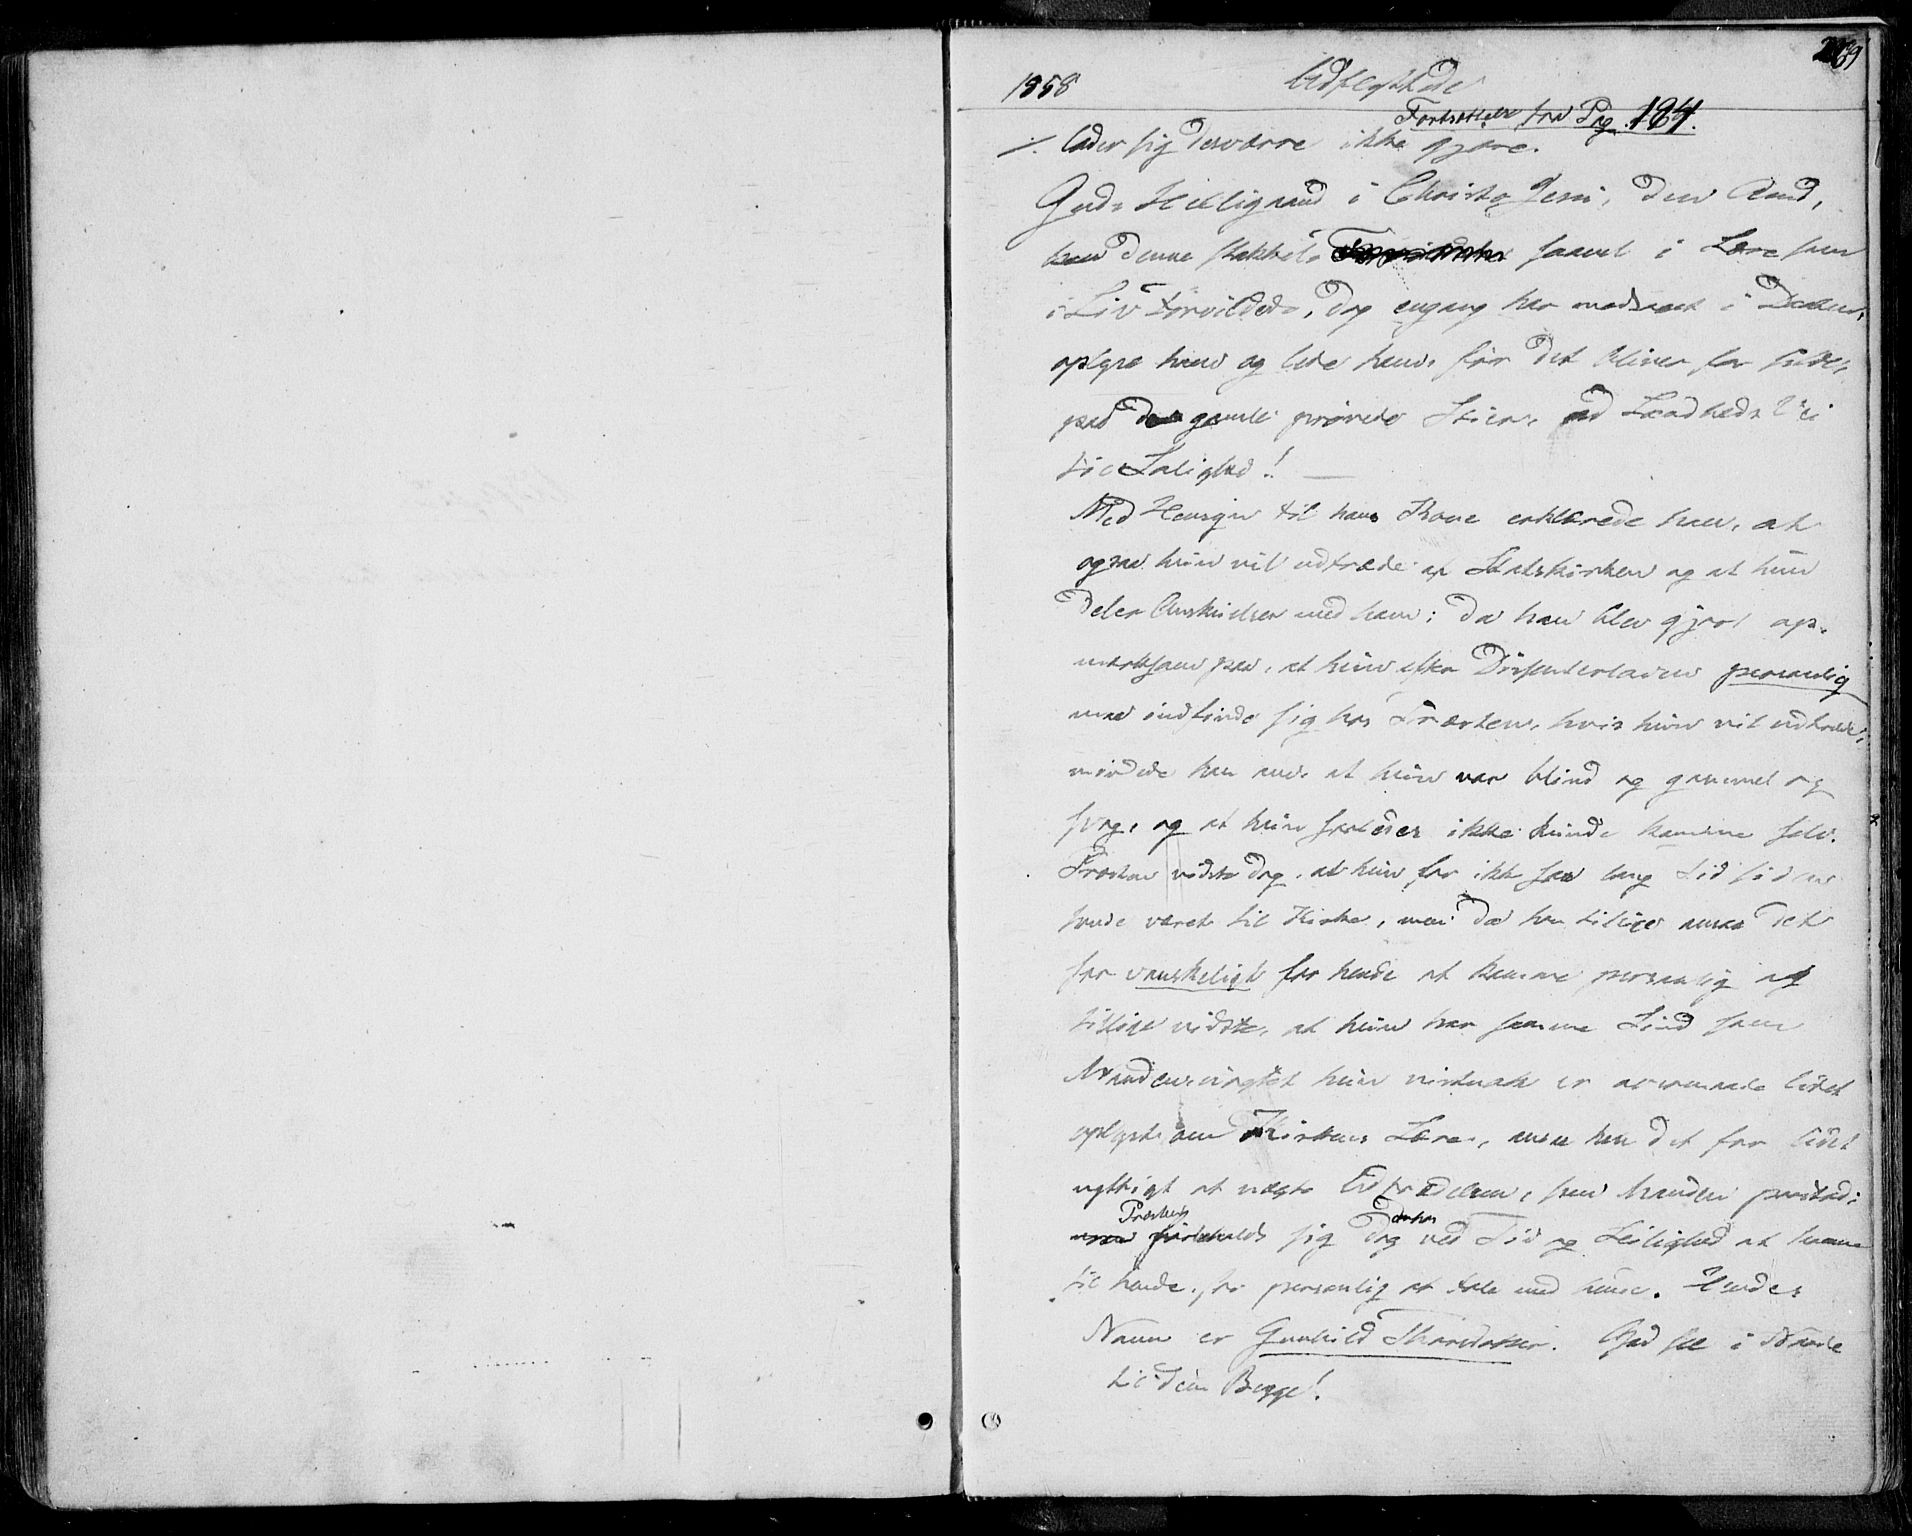 1858 Udflyttede
Fortsættelse fra Pag. 184.
./. lader sig desværre ikke gjøre.
Guds Helligaand i Christo Jesu, den Aand,
denne stakkels saavel i Lære som
i Liv forvildede, dog engang har modtaget i Daaben,
oplyse ham og lede ham, før det bliver for silde,
paa de gamle prøvede Stier, ad Sandheds Vei
til Salighed! —
Med Hensyn til hans Kone erklærede han, at
ogsaa hun vil udtræde af Statskirken og at hun
deler Anskuelser med ham; da han blev gjort op-
mærksom paa, at hun efter Dissenterloven personlig
maa indfinde sig hos Præsten, hvis hun vil udtræde,
at hun var blind og gammel og
svag, og at hun saaledes ikke kunde komme selv.
Præsten vidste dog, at hun for ikke saa lang Tid siden
havde været til Kirke, men da han tillige ansaa det
for vanskeligt for hende at komme personlig og
tillige vidste, at hun har samme Sind som
Manden, uagtet hun vistnok er lidet
oplyst om Kirkens Lære, ansaa han det for lidet
nyttigt at nægte Udtrædelsen, som Manden paastod;
Præsten forbeholdt sig dog ved Tid og Leilighed at komme
til hende, for personlig at tale med hende. Hendes
Navn er Gunhild . Gud see i Naade
til dem Begge!